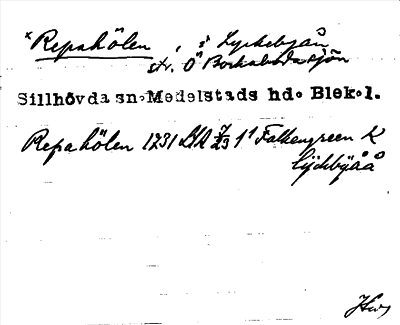 *Repahölen, i Lyckebyån
str. O Borkalmdasjön
Sillhövda sn. Medelstads hd. Blek.l.
Repahölen 1231 LSA 7/23 1¹ Falkengreen K
Lyckbyåå